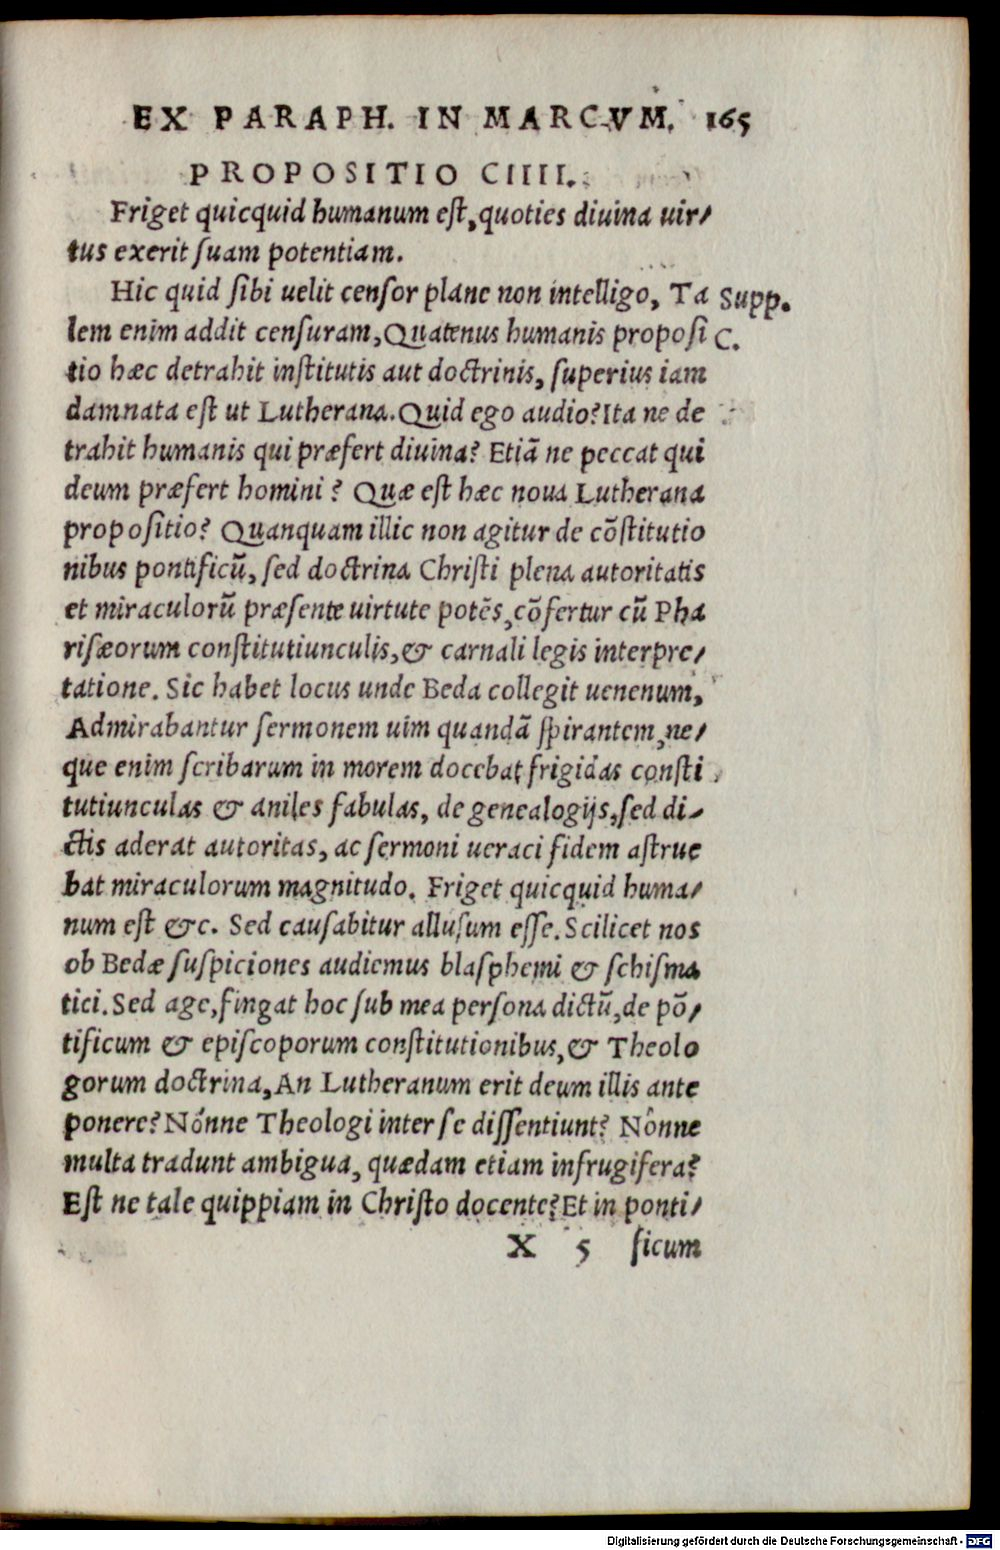 EX PARAPH. IN MARCVM. 165
PROPOSITIO CIIII.
Friget quicquid humanum eſt, quoties diuina uir/
tus exerit ſuam potentiam.
Hic quid ſibi uelit cenſor plane non intelligo, Ta Supp.
lem enim addit cenſuram, Quatenus humanis propoſi C.
tio hæc detrahit inſtitutis aut doctrinis, ſuperius iam
damnata eſt ut Lutherana. Quid ego audio? Ita ne de
trahit humanis qui præfert diuina? Etiã ne peccat qui
deum præfert homini? Quæ eſt hæc noua Lutherana
propoſitio? Quanquam illic non agitur de cõſtitutio
nibus pontificũ, ſed doctrina Chriſti plena autoritatis
et miraculorũ præſente uirtute potẽs, cõfertur cũ Pha
riſæorum conſtitutiunculis, & carnali legis interpre/
tatione. Sic habet locus unde Beda collegit uenenum,
Admirabantur ſermonem uim quandã ſpirantem, ne/
que enim ſcribarum in morem docebat frigidas conſti
tutiunculas & aniles fabulas, de genealogijs, ſed di/
ctis aderat autoritas, ac ſermoni ueraci fidem aſtrue
bat miraculorum magnitudo. Friget quicquid huma/
num eſt &c. Sed cauſabitur alluſum eſſe. Scilicet nos
ob Bedæ ſuſpiciones audiemus blaſphemi & ſchiſma
tici. Sed age, fingat hoc ſub mea perſona dictũ, de põ/
tificum & epiſcoporum conſtitutionibus, & Theolo
gorum doctrina, An Lutheranum erit deum illis ante
ponere? Nónne Theologi inter ſe diſſentiunt? Nónne
multa tradunt ambigua, quædam etiam infrugifera?
Eſt ne tale quippiam in Chriſto docente? Et in ponti/
X 5 ficum
Digitalisierung gefördert durch die Deutsche Forschungsgemeinschaft - DFG